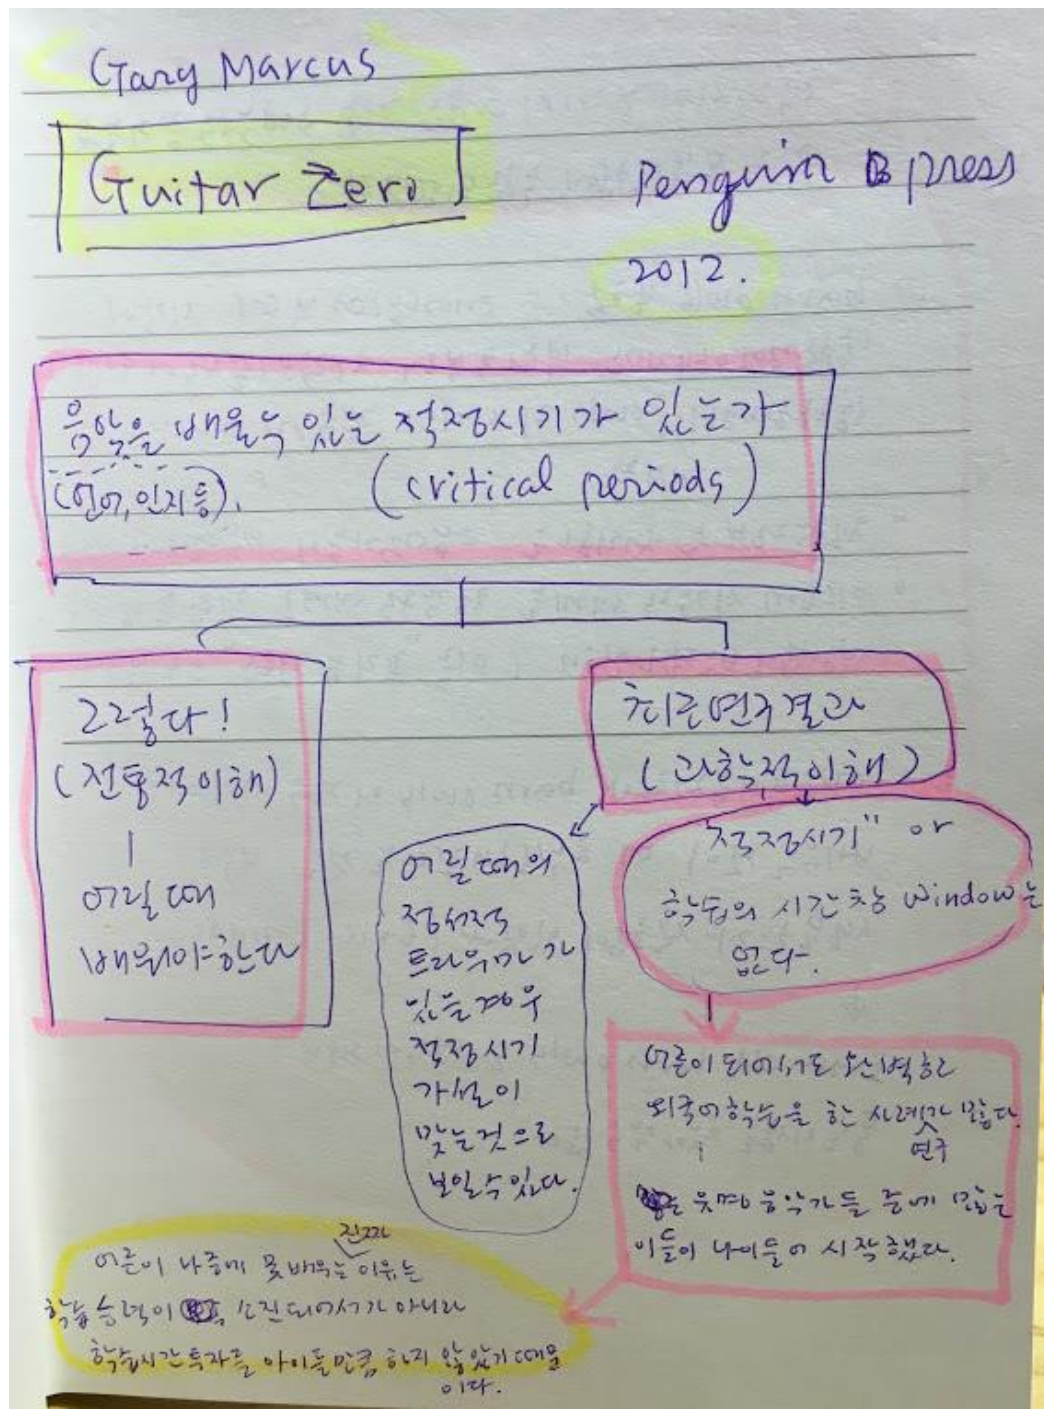 Gary Marcus
Guitar Zero
Penguin press
2012.
음악을 배울 수 있는 적정시기가 있는가
(언어, 인지 등). (critical periods)
그렇다!
(전통적 이해)
어릴 때
배워야 한다
최근 연구결과
(과학적 이해)
어릴 때의
정서적
트라우마가
있을 경우
적정시기
가설이
맞는 것으로
보일 수 있다.
"적정시기" or
학습의 시간 창 window는
없다.
어른이 되어서도 완벽한
외국어 학습을 한 사례가 많다.
연구
유명 음악가들 중에 많은
이들이 나이 들어 시작했다.
진짜
어른이 나중에 못 배우는 이유는
학습 능력이 소진되어서가 아니라
학습시간 투자를 아이들만큼 하지 않았기 때문
이다.